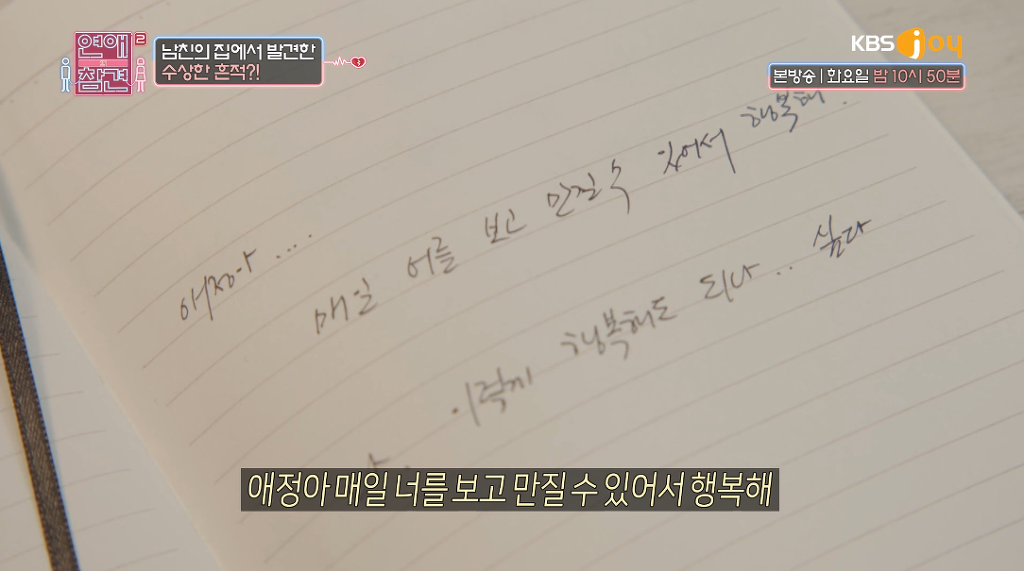 연애의 참견 2
남친의 집에서 발견한
수상한 흔적?!
KBS joy
본방송 | 화요일 밤 10시 50분
애정아....
매일 너를 보고 만질 수 있어서 행복해.
이렇게 행복해도 되나.. 싶다
애정아 매일 너를 보고 만질 수 있어서 행복해